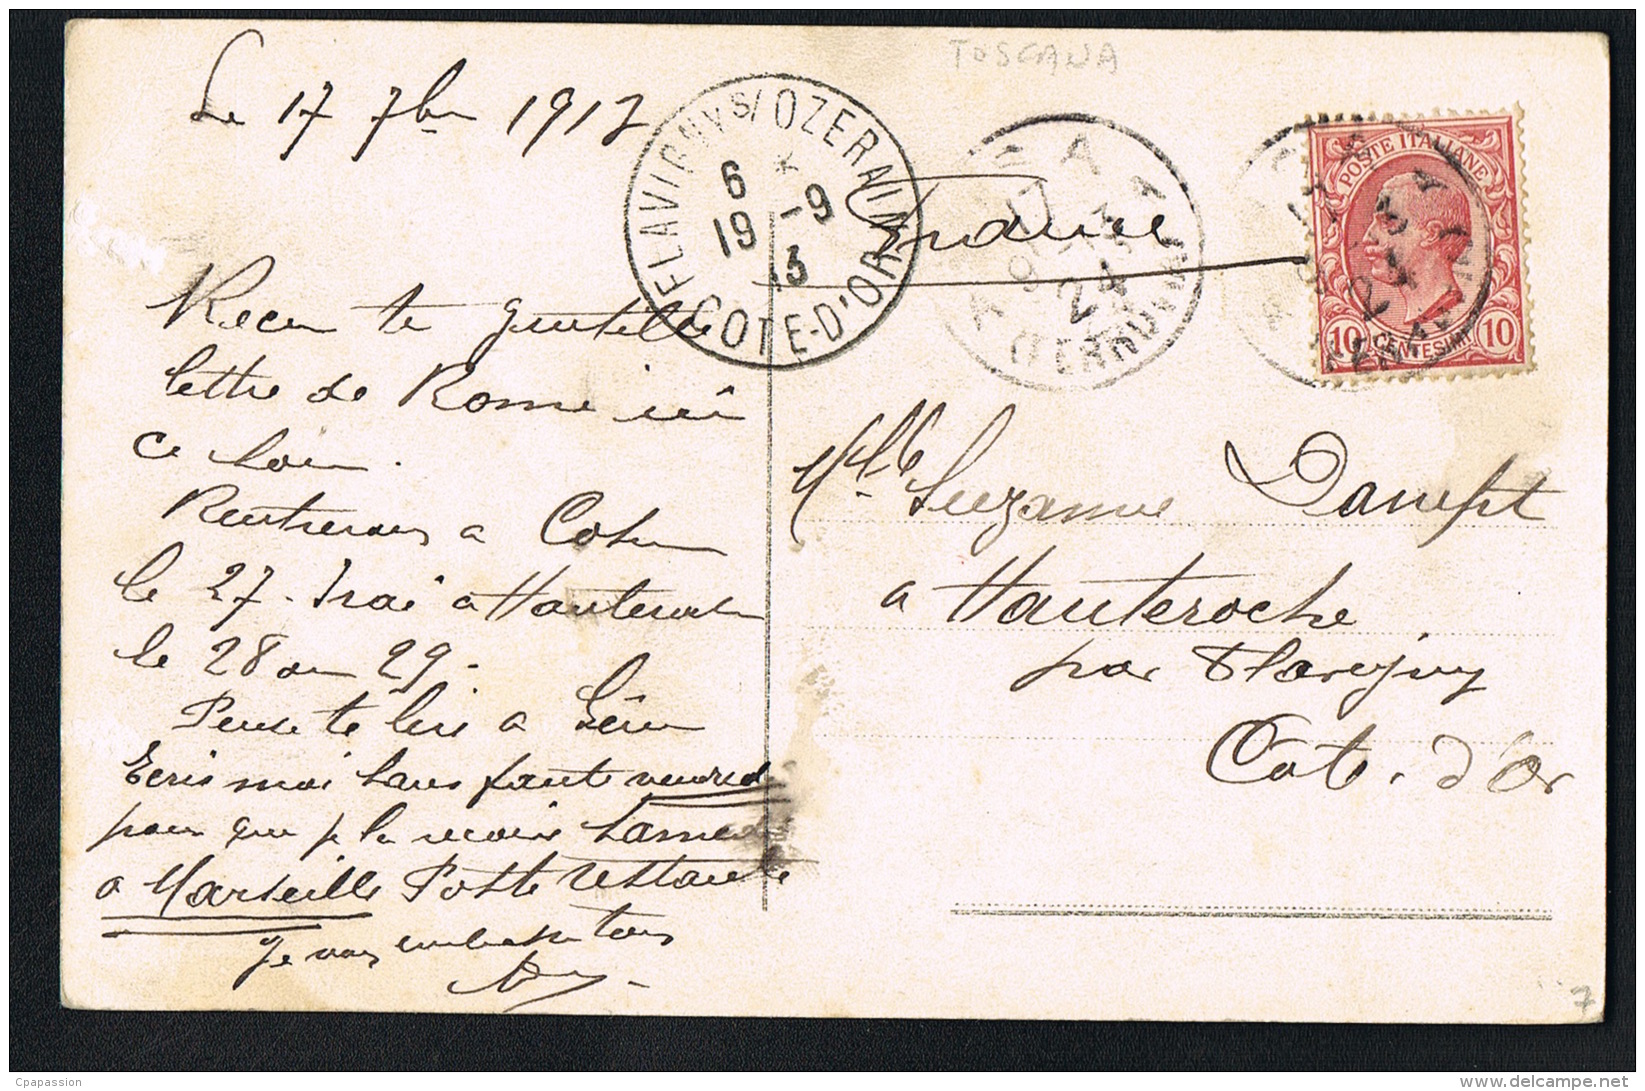 TOSCANA
Le 17 7bre 1913
FLAVIGNY S/ OZERAIN
6 -9
19 13
COTE-D'OR
France
POSTE ITALIANE
10 CENTESIMI 10
Reçu ta gentille
lettre de Rome ici
ce soir.
Rentrerons a
le 27. Irai a Hauteroche
le 28 ou 29.
Melle Suzanne Dampt
a Hauteroche
par Flavigny
Côte. d'Or
Ecris moi sans faute vendredi
pour que je la reçoive samedi
a Marseille Poste restante
Je vous embrasse tous
7
Cpapassion
www.delcampe.net